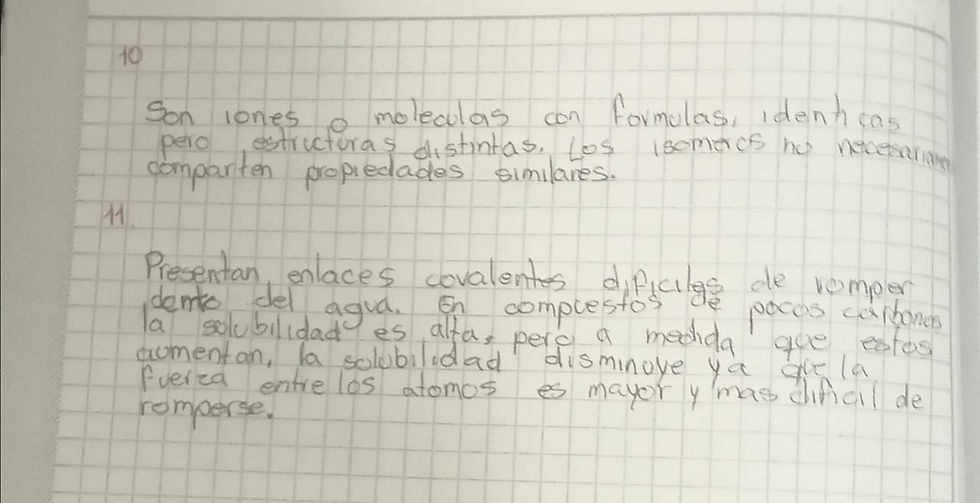 10
Son iones o moleculas con formulas, identicas
pero estructuras distintas. Los isomeros no necesariamente
comparten propiedades similares.
11.
Presentan enlaces covalentes dificiles de romper
dentro del agua. En compuestos de pocos carbonos
la solubilidad es alta, pero a medida que estos
aumentan, la solubilidad disminuye ya que la
fuerza entre los atomos es mayor y mas dificil de
romperse.